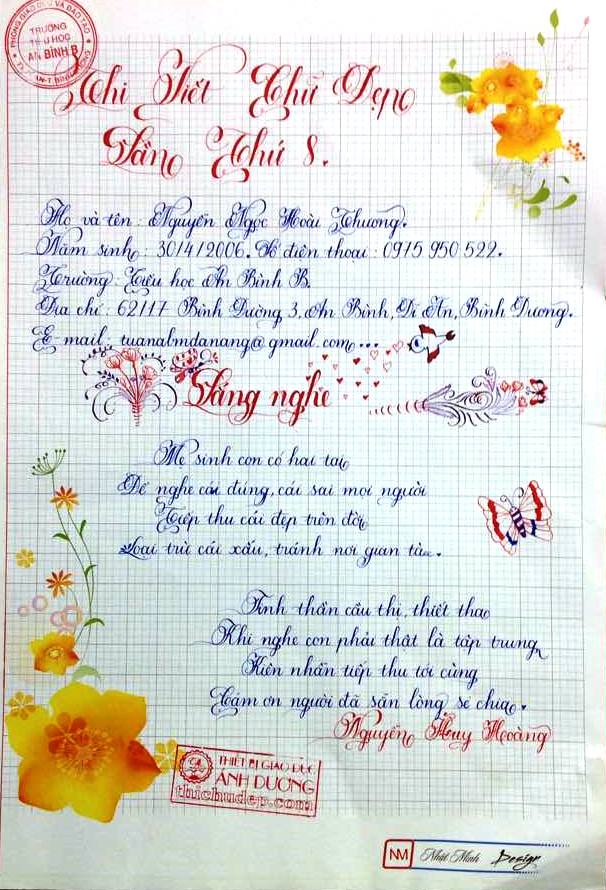 PHÒNG GIÁO DỤC VÀ ĐÀO TẠO
TRƯỜNG
TIỂU HỌC
AN BÌNH B
Thi Viết Chữ Đẹp
Lần Thứ 8.
Họ và tên: Nguyễn Ngọc Hoài Thương.
Năm sinh: 30/4/2006. Số điện thoại: 0915 950 522.
Trường: Tiểu học An Bình B.
Địa chỉ: 62/17 Bình Đường 3, An Bình, Dĩ An, Bình Dương.
E-mail: tuanalmdanang@gmail.com...
Lắng nghe
Mẹ sinh con có hai tai
Để nghe cái đúng, cái sai mọi người
Tiếp thu cái đẹp trên đời
Loại trừ cái xấu, tránh nơi gian tà.
Tinh thần cầu thị, thiết tha
Khi nghe con phải thật là tập trung
Kiên nhẫn tiếp thu tới cùng
Cám ơn người đã sẵn lòng sẻ chia.
Nguyễn Huy Hoàng
THIẾT BỊ GIÁO DỤC
ÁNH DƯƠNG
thichudep.com
NM Nhật Minh Design